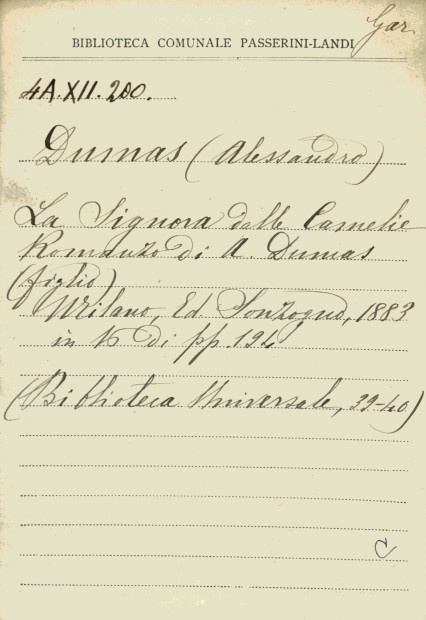 Gar
BIBLIOTECA COMUNALE PASSERINI-LANDI
4A.XII.200.
Dumas (Alessandro)
La Signora dalle Camelie
Romanzo di A Dumas
(figlio)
Milano, Ed Sonzogno, 1883
in 16 di pp. 194
(Biblioteca Universale, 39-40)
C